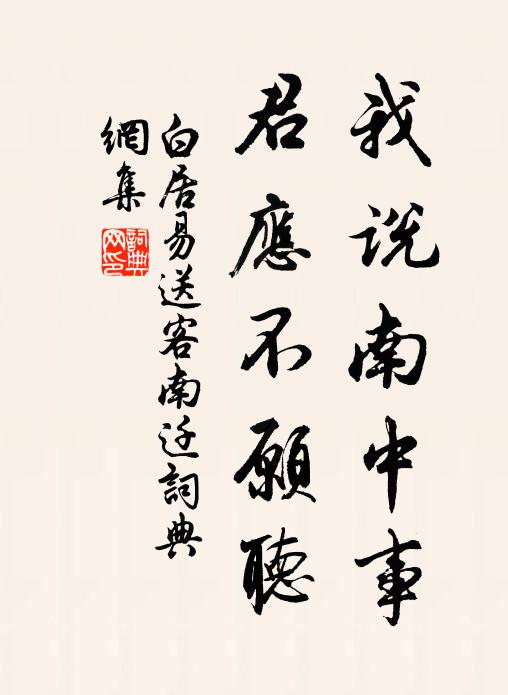 我说南中事
君應不願聽
白居易送客南迁詞典
網集
詞典網印